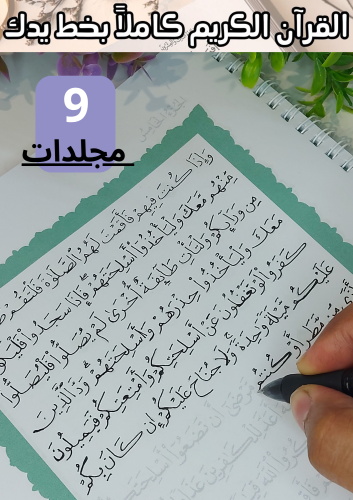 القرآن الكريم كاملاً بخط يدك
9
مجلدات
وَإِذَا كُنتَ فِيهِمْ فَأَقَمْتَ لَهُمُ الصَّلَاةَ فَلْتَقُمْ
مِنْهُم مَّعَكَ وَلْيَأْخُذُوا أَسْلِحَتَهُمْ فَإِذَا سَجَدُوا
مِن وَرَائِكُمْ وَلْتَأْتِ طَائِفَةٌ أُخْرَىٰ لَمْ يُصَلُّوا فَلْيُصَلُّوا
مَعَكَ وَلْيَأْخُذُوا حِذْرَهُمْ وَأَسْلِحَتَهُمْ وَدَّ الَّذِينَ
كَفَرُوا لَوْ تَغْفُلُونَ عَنْ أَسْلِحَتِكُمْ وَأَمْتِعَتِكُمْ فَيَمِيلُونَ
عَلَيْكُم مَّيْلَةً وَاحِدَةً وَلَا جُنَاحَ عَلَيْكُمْ إِن كَانَ بِكُمْ
مَّطَرٍ أَوْ كُنتُم